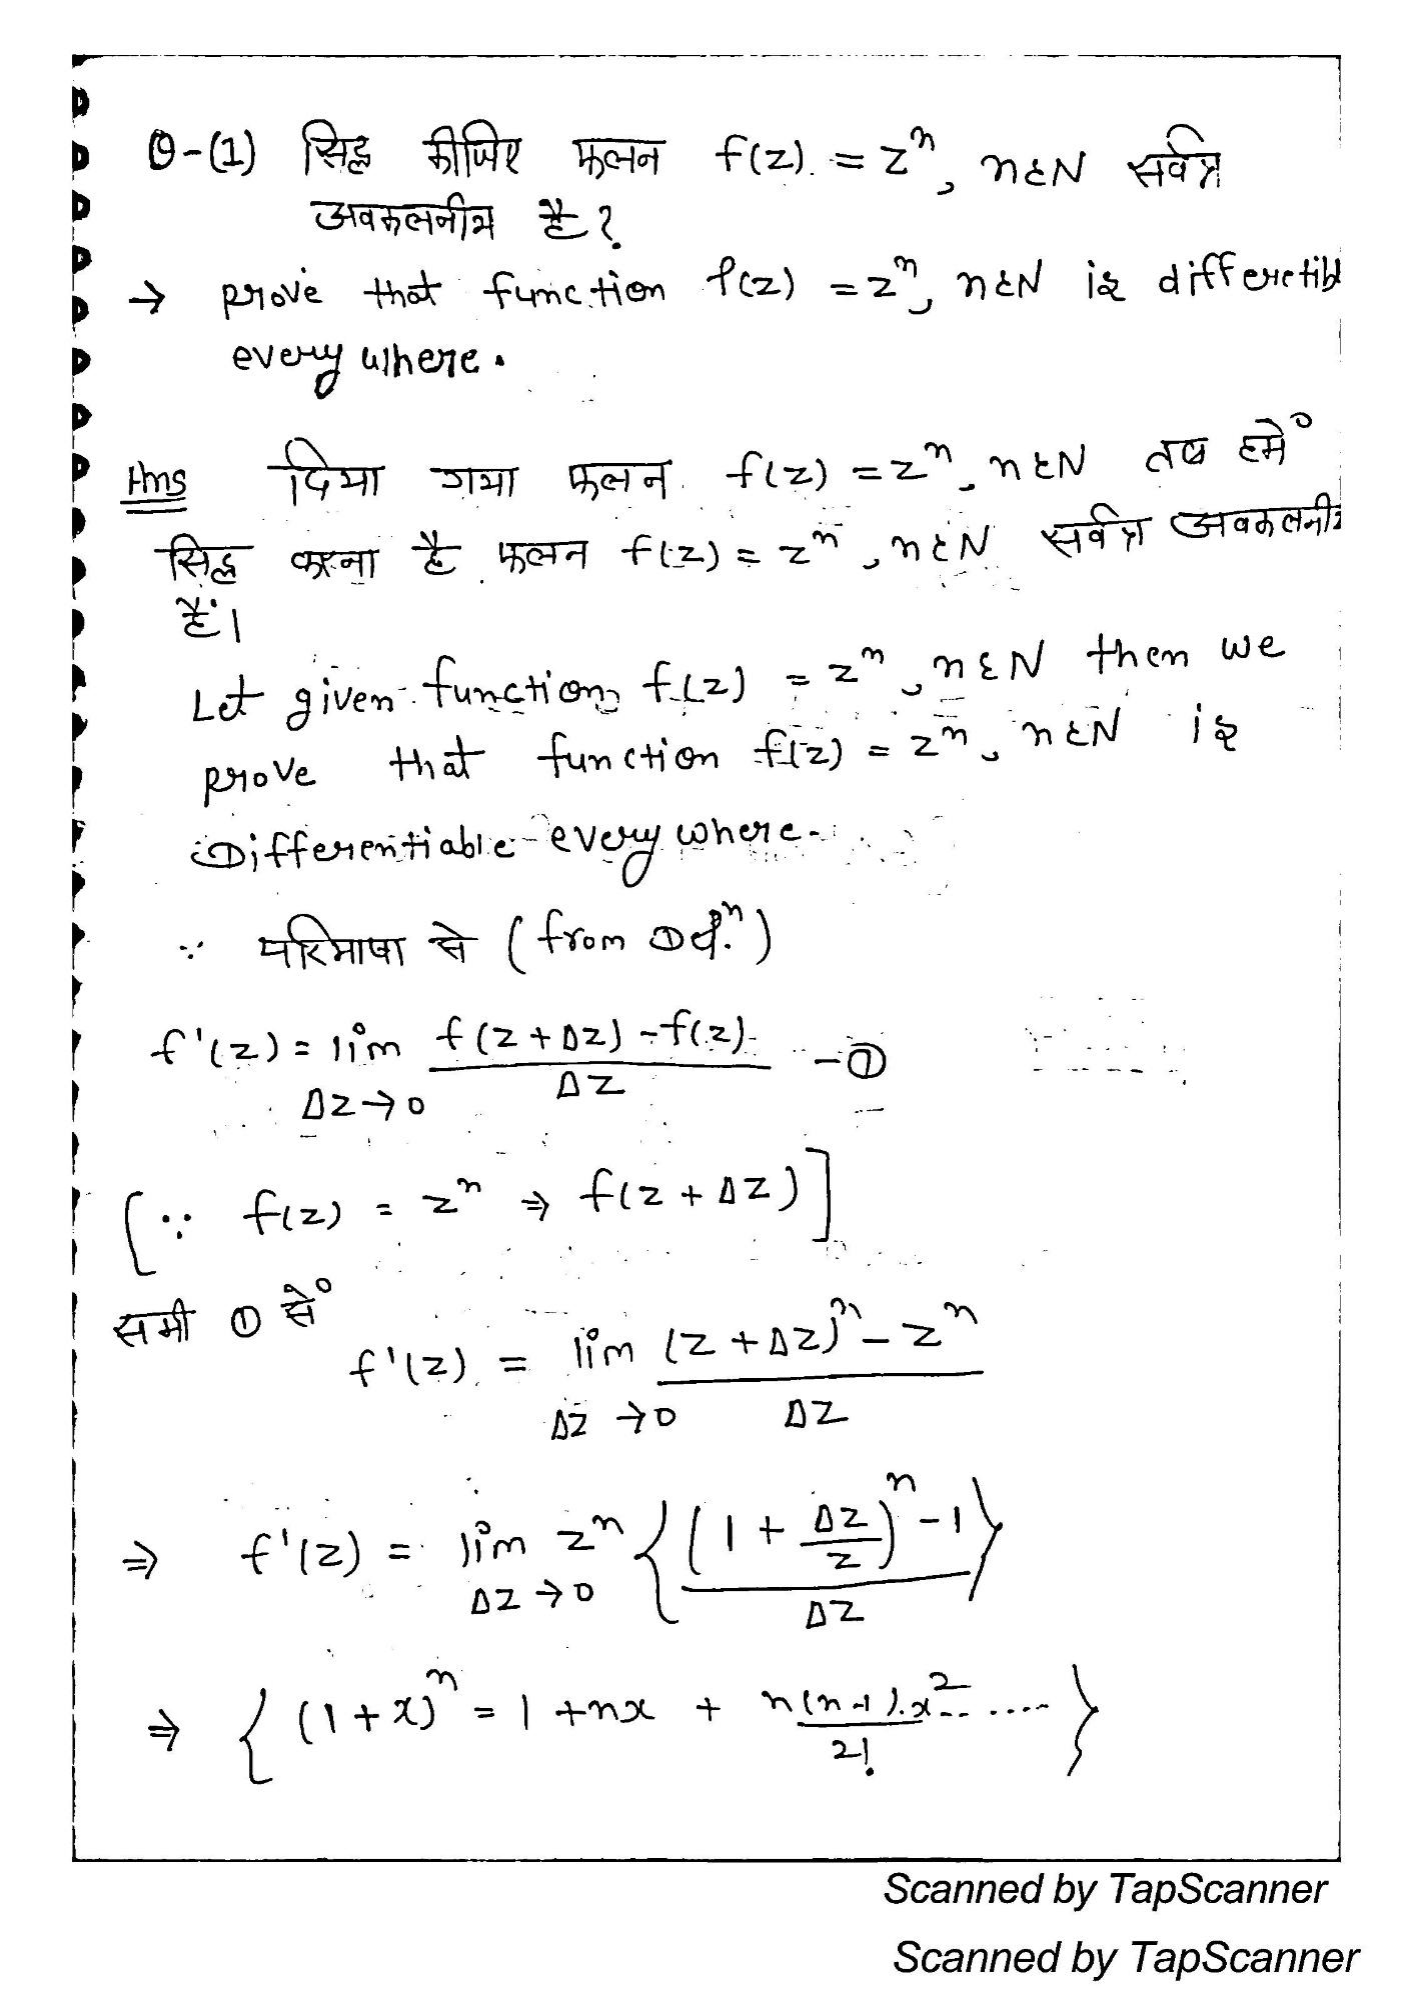 Q-(1) सिद्ध कीजिए फलन f(z) = zⁿ, n∈N सर्वत्र
अवकलनीय है?
→ prove that function f(z) = zⁿ, n∈N is differetibl
every where.
Ans दिया गया फलन f(z) = zⁿ, n∈N तब हमें
सिद्ध करना है फलन f(z) = zⁿ, n∈N सर्वत्र अवकलनीय
हैं।
Let given function f(z) = zⁿ, n∈N then we
prove that function f(z) = zⁿ, n∈N is
Differentiable every where.
∵ परिभाषा से (from Def.ⁿ)
f'(z) = lim_{Δz→0} (f(z+Δz) - f(z))/Δz - ①
[∵ f(z) = zⁿ ⇒ f(z+Δz)]
समी ① से
f'(z) = lim_{Δz→0} ((z+Δz)ⁿ - zⁿ)/Δz
⇒ f'(z) = lim_{Δz→0} zⁿ {((1 + Δz/z)ⁿ - 1)/Δz}
⇒ {(1+x)ⁿ = 1 + nx + n(n-1).x²/2! ......}
Scanned by TapScanner
Scanned by TapScanner